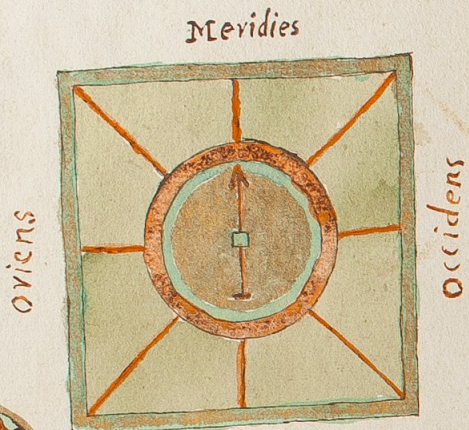 Meridies
Oriens
Occidens